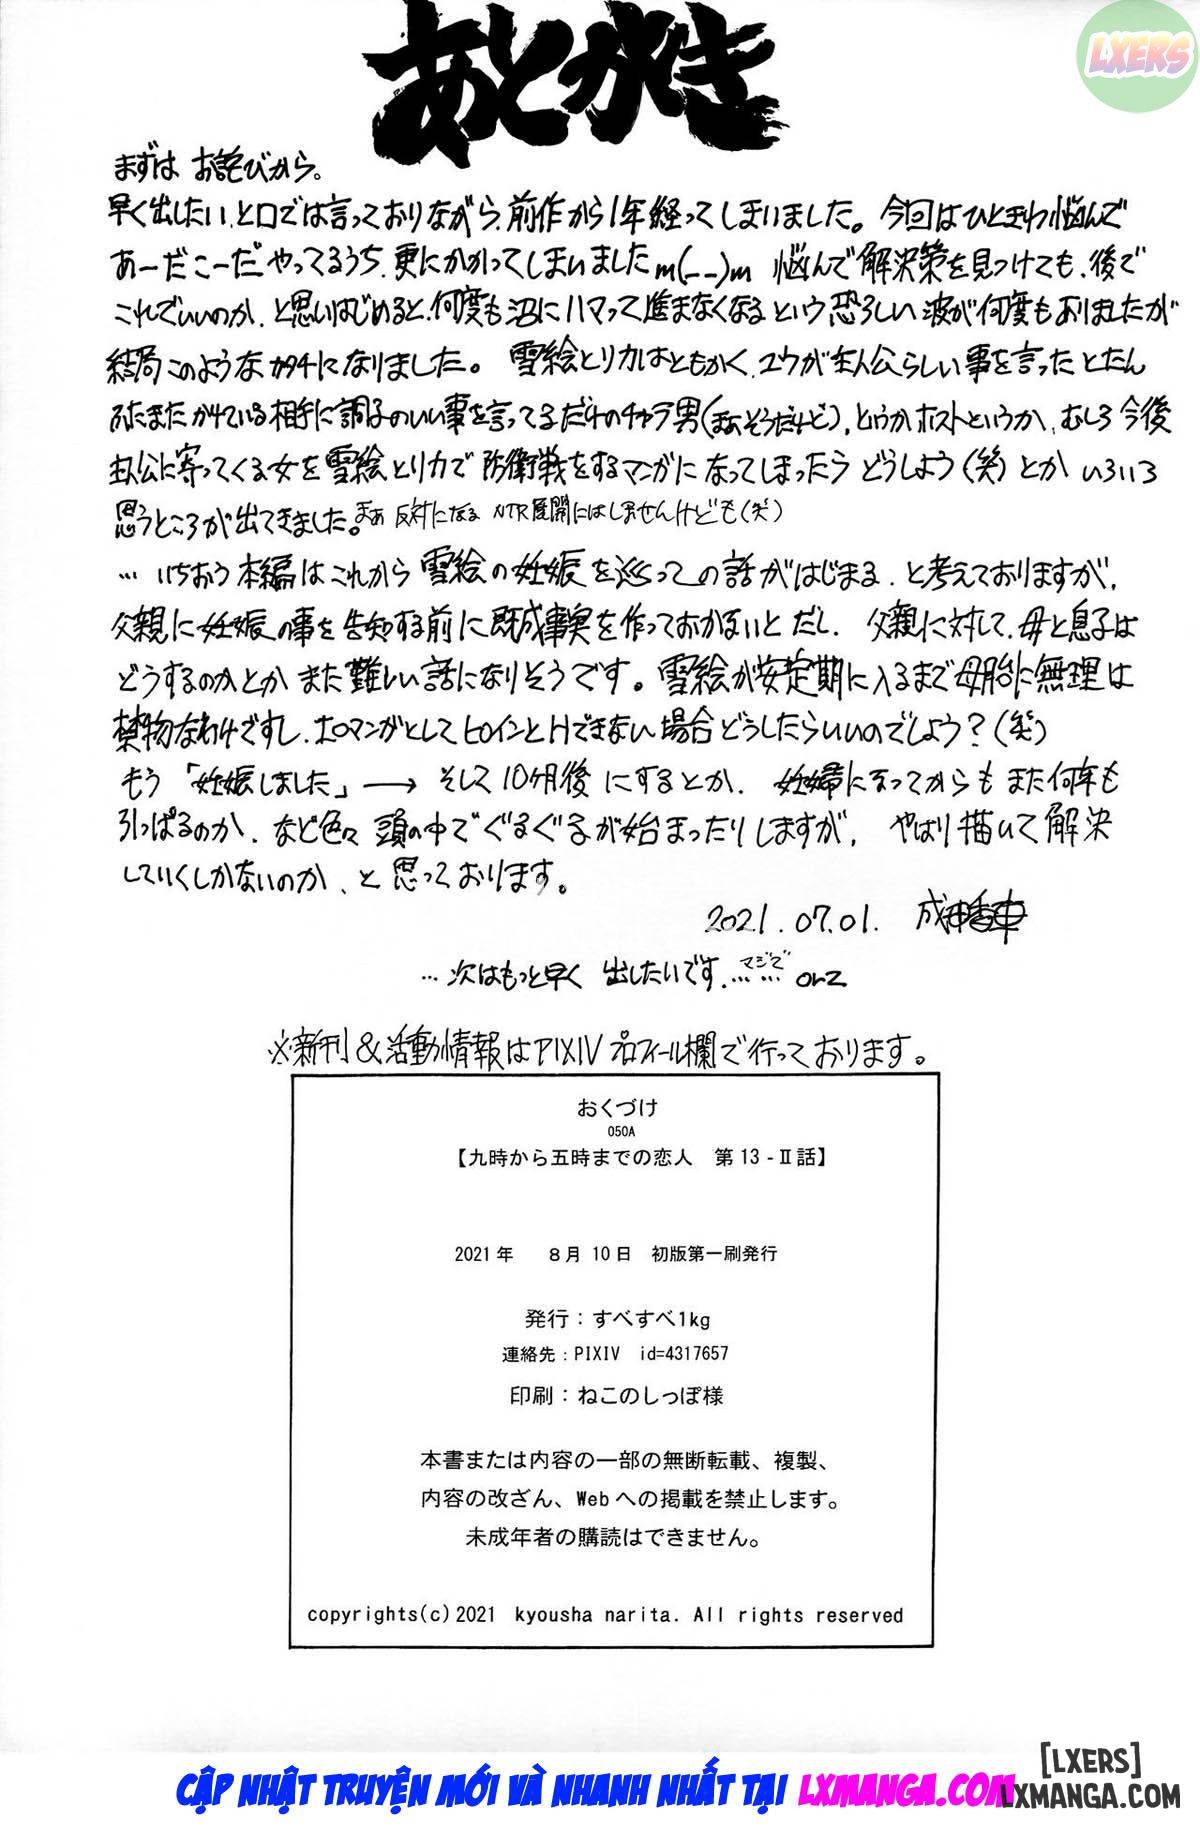 LXERS
あとがき
まずは お詫びから。
早く出したい、と口では言っておりながら、前作から1年経ってしまいました。今回はひときわ悩んで
あーだこーだやってるうち、更にかかってしまいましたm(--)m 悩んで解決策を見つけても、後で
これでいいのか、と思いはじめると、何度も沼にハマって進まなくなるという恐ろしい波が何度もありましたが
結局このようなカタチになりました。 雪絵とリカはともかく、ユウが主人公らしい事を言ったとたん
ふたまたかけている相手に調子のいい事を言ってるだけのチャラ男(まぁそうだけど)、というかホストというか、むしろ今後
主人公に寄ってくる女を雪絵とリカで防衛戦をするマンガになってしまったらどうしよう(笑)とか いろいろ
思うところが出てきました。まぁ 反対になる NTR展開にはしませんけども(笑)
… いちおう本編はこれから雪絵の妊娠を巡っての話がはじまる、と考えておりますが、
父親に妊娠の事を告知する前に既成事実を作っておかないとだし、 父親に対して、母と息子は
どうするのかとか また難しい話になりそうです。雪絵が安定期に入るまで母胎に無理は
禁物なわけですし、エロマンガとしてヒロインとHできない場合どうしたらいいのでしょう?(笑)
もう「妊娠しました」→ そして10ヶ月後 にするとか、 妊婦になってからも また何年も
引っぱるのか、など色々 頭の中でぐるぐるが始まったりしますが、 やはり描いて解決
していくしかないのか、と思っております。
2021.07.01. 成田香車
… 次はもっと早く 出したいです、マジで…… orz
※新刊&活動情報はPIXIVプロフィール欄で行っております。
おくづけ
050A
【九時から五時までの恋人 第13-Ⅱ話】
2021年 8月10日 初版第一刷発行
発行：すべすべ1kg
連絡先：PIXIV id=4317657
印刷：ねこのしっぽ様
本書または内容の一部の無断転載、複製、
内容の改ざん、Webへの掲載を禁止します。
未成年者の購読はできません。
copyrights(c)2021 kyousha narita. All rights reserved
[LXERS]
CẬP NHẬT TRUYỆN MỚI VÀ NHANH NHẤT TẠI LXMANGA.COM
LXMANGA.COM